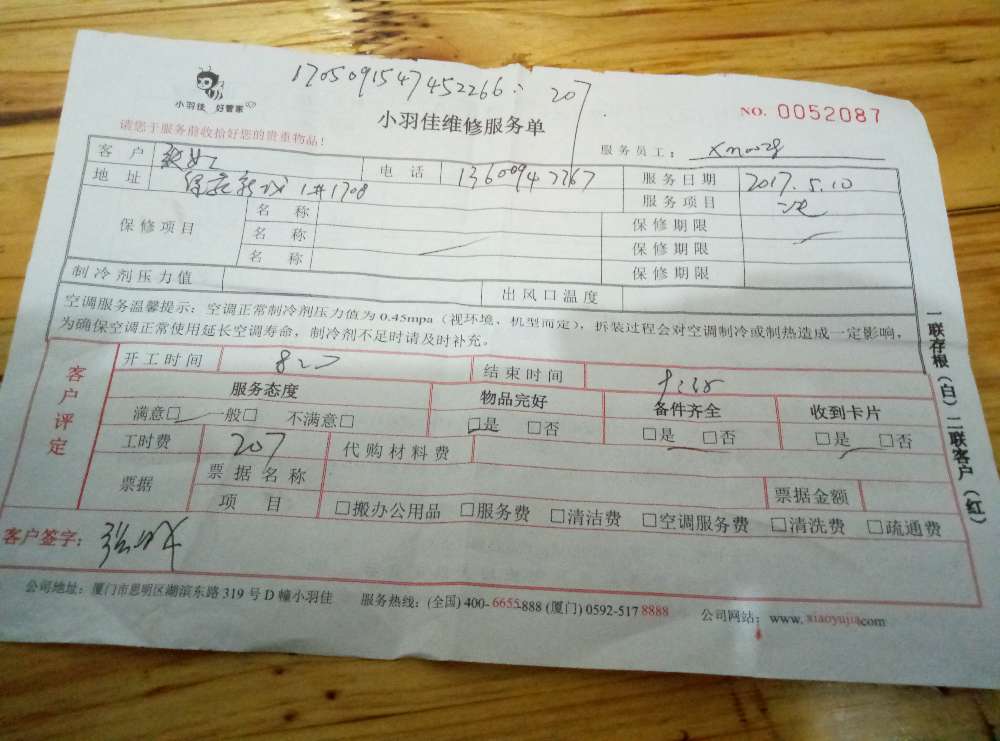 1705091547452266: 207
小羽佳 好管家
小羽佳维修服务单
NO. 0052087
请您于服务前收拾好您的贵重物品!
服务员工:
客户 电话 服务日期 2017.5.10
地址 1#1708 服务项目
保修项目 名称 保修期限
名称 保修期限
名称 保修期限
制冷剂压力值 出风口温度
空调服务温馨提示:空调正常制冷剂压力值为0.45mpa(视环境、机型而定),拆装过程会对空调制冷或制热造成一定影响,
为确保空调正常使用延长空调寿命,制冷剂不足时请及时补充。
客户评定
开工时间 结束时间
服务态度 物品完好 备件齐全 收到卡片
满意□ 一般□ 不满意□ □是 □否 □是 □否 □是 □否
工时费 207 代购材料费
票据 票据名称 票据金额
项目 □搬办公用品 □服务费 □清洁费 □空调服务费 □清洗费 □疏通费
客户签字:
公司地址:厦门市思明区湖滨东路319号D幢小羽佳 服务热线:(全国)400-6655-888 (厦门)0592-5178888 公司网站:www.xiaoyujia.com
一联存根(白)二联客户(红)